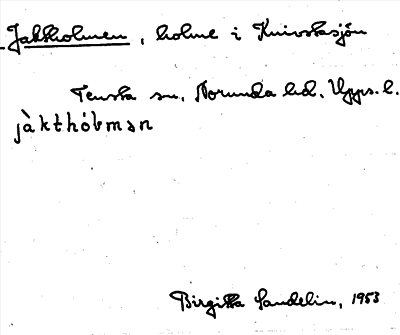 Jaktholmen, holme i Knivstasjön
Tensta sn. Norunda hd. Upps. l.
jàkthólmən
Birgitta Sandelin, 1953